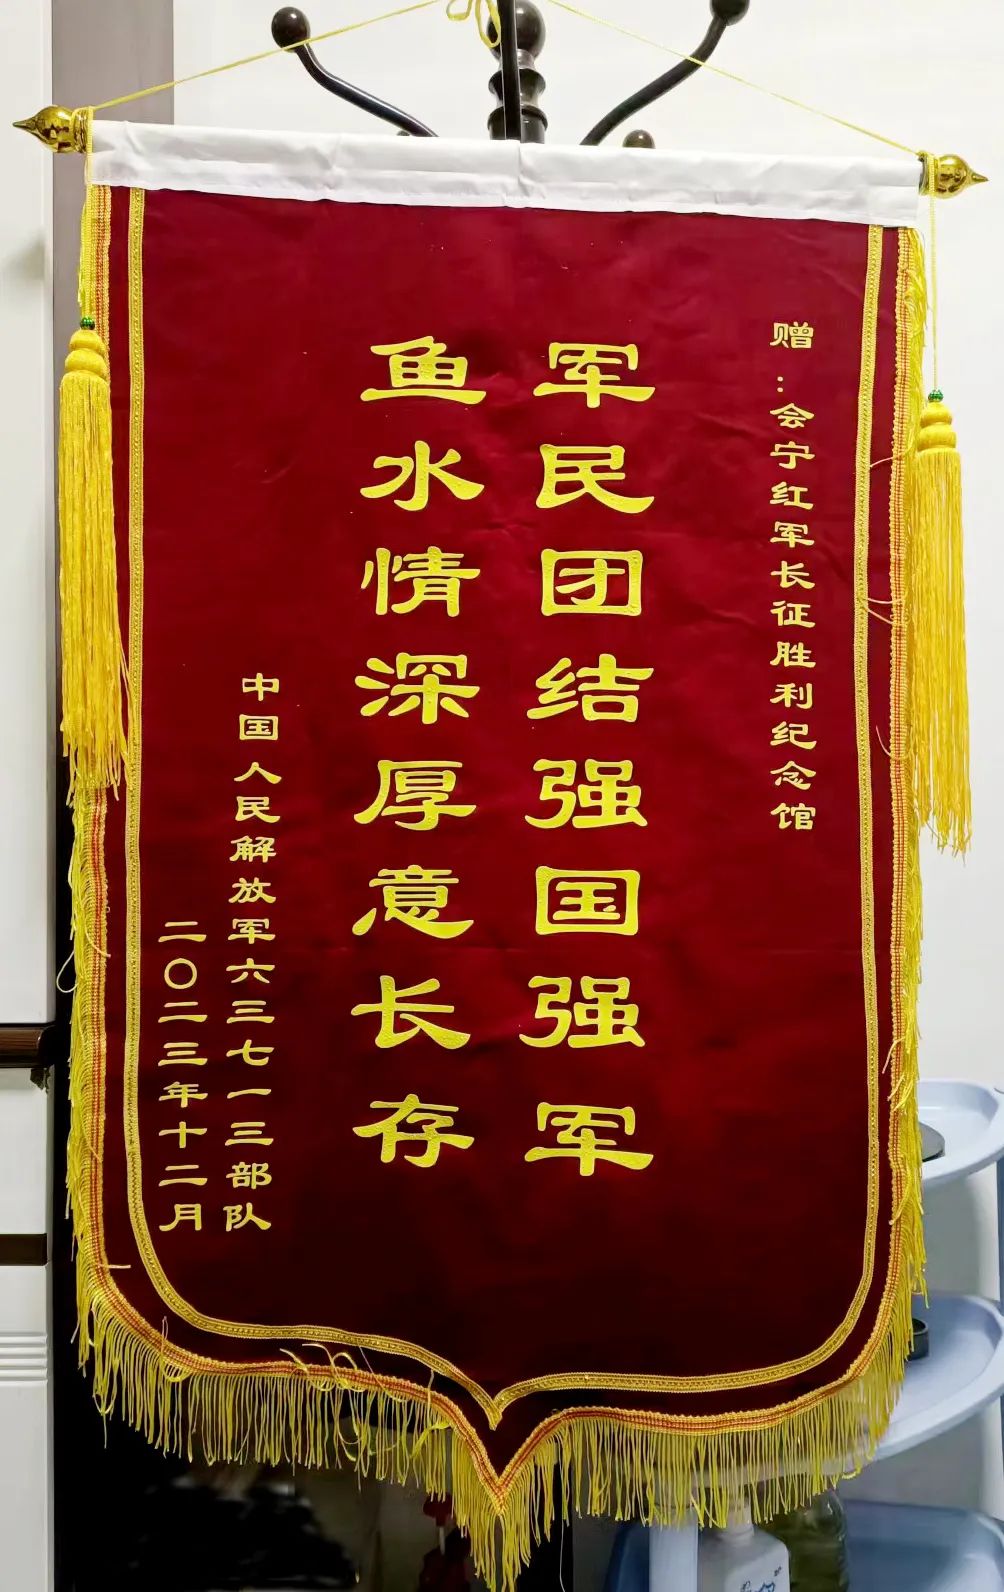 赠：会宁红军长征胜利纪念馆
军民团结强国强军
鱼水情深厚意长存
中国人民解放军六三七一三部队
二〇二三年十二月